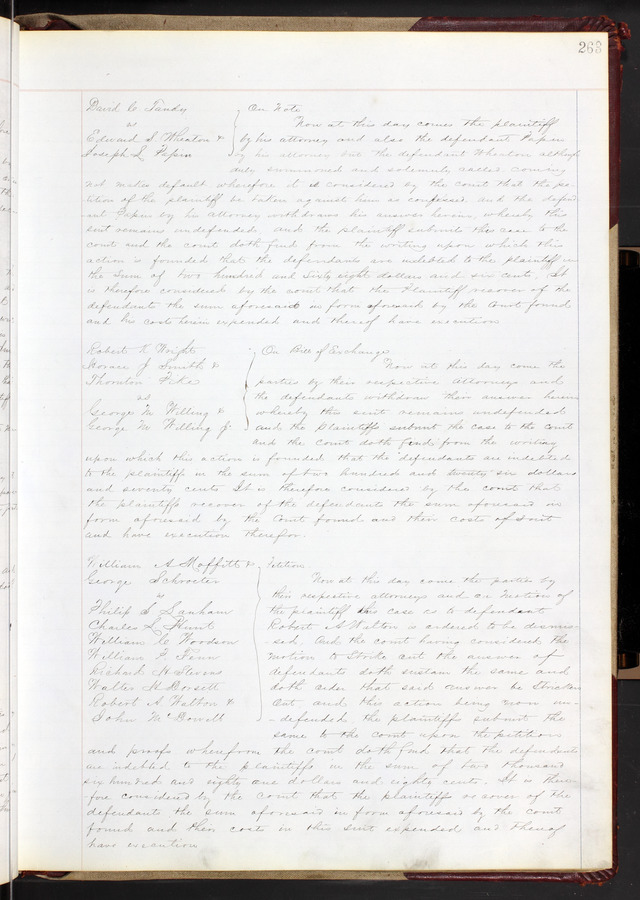 263
David C. Tandy
vs
Edward S. Wheaton &
Joseph L. Papin
On Note
Now at this day comes the plaintiff
by his attorney and also the defendant Papin
by his attorney but the defendant Wheaton although
duly summoned and solemnly called coming
not makes default wherefore it is considered by the court that the pe-
tition of the plaintiff be taken against him as confessed and the defend-
ant Papin by his attorney withdraws his answer herein, whereby this
suit remains undefended, and the plaintiff submits this case to the
court and the court doth find from the writing upon which this
action is founded that the defendants are indebted to the plaintiff in
the sum of two hundred and sixty eight dollars and six cents, It
is therefore considered by the court that the Plaintiff recover of the
defendants the sum aforesaid in form aforesaid by the Court found
and his costs herein expended and thereof have execution
Robert K. Wright
Horace J. Smith &
Thornton Pike
vs
George M. Willing &
George M. Willing Jr.
On Bill of Exchange
Now at this day come the
parties by their respective attorneys and
the defendants withdraw their answer herein
whereby this suit remains undefended
and the Plaintiffs submit the case to the court
and the court doth find from the writing
upon which this action is founded that the defendants are indebted
to the plaintiffs in the sum of two hundred and twenty six dollars
and seventy cents It is therefore considered by the court that
the plaintiffs recover of the defendants the sum aforesaid in
form aforesaid by the Court found and their costs of suit
and have execution therefor.
William A. Moffitt &
George Schroeter
vs
Philip S. Lanham
Charles L. Hunt
William C. Woodson
William F. Fenn
Richard H. Stevens
Walter H. Dorsett
Robert A. Walton &
John McDowell
Petition
Now at this day come the parties by
their respective attorneys and on motion of
the plaintiff this case as to defendant
Robert A. Walton is ordered to be dismis-
-sed. And the court having considered the
motion to strike out the answer of
defendants doth sustain the same and
doth order that said answer be stricken
out, and this action being now un-
-defended, the plaintiffs submit the
same to the court upon the petition
and proofs wherefrom the court doth find that the defendants
are indebted to the plaintiffs in the sum of two thousand
six hundred and eighty one dollars and eighty cents. It is there-
fore considered by the court that the plaintiffs recover of the
defendants the sum aforesaid in form aforesaid by the court
found and their costs in this suit expended and thereof
have execution